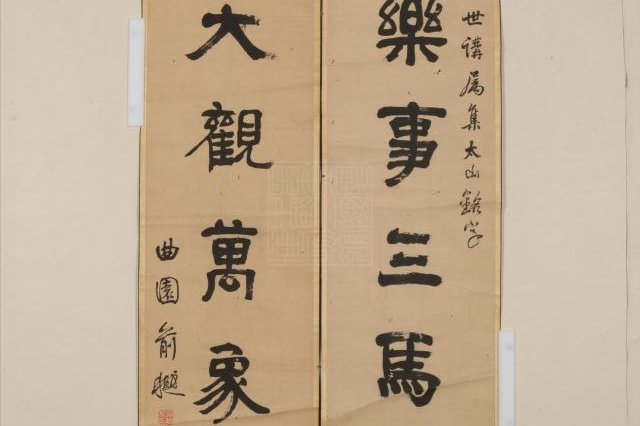 世講屬集太山銘字
樂事三馬
大觀萬象
曲園俞樾